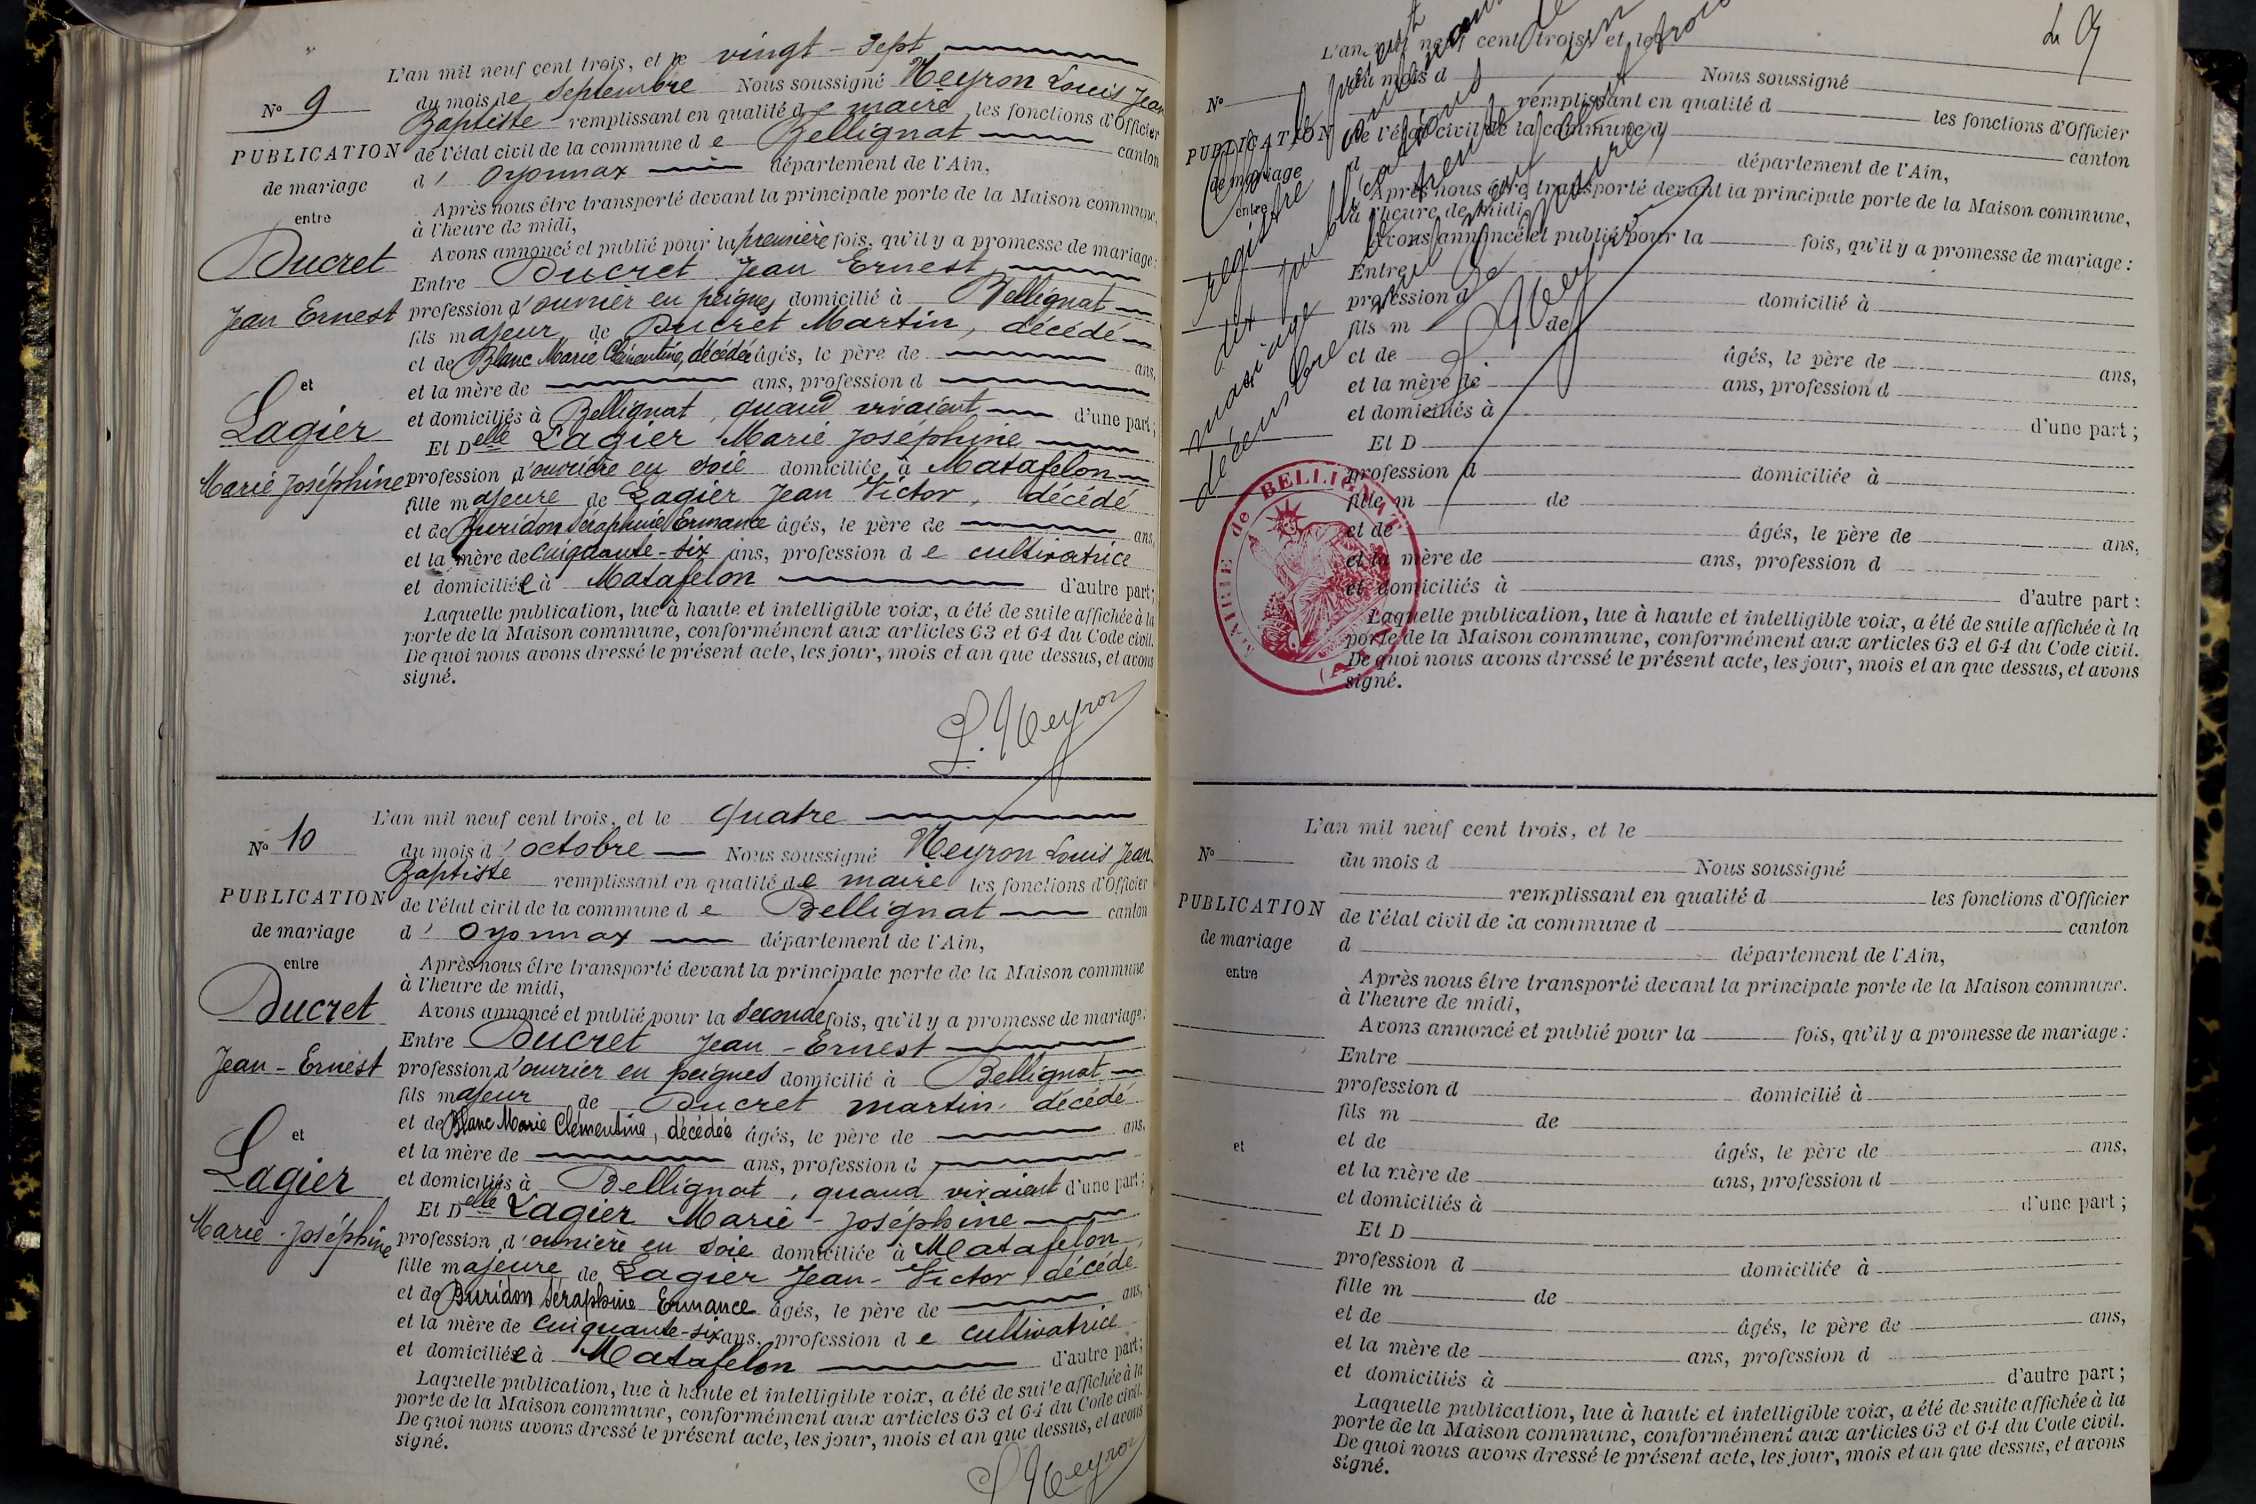 L'an mil neuf cent trois, et le vingt-sept
N° 9 du mois de Septembre Nous soussigné Neyron Louis Jean
Baptiste remplissant en qualité de maire les fonctions d'Officier
PUBLICATION de l'état civil de la commune de Bellignat canton
de mariage d'Oyonnax département de l'Ain,
entre Après nous être transporté devant la principale porte de la Maison commune,
à l'heure de midi,
Ducret Avons annoncé et publié pour la première fois, qu'il y a promesse de mariage:
Entre Ducret Jean Ernest
Jean Ernest profession d'ouvrier en peignes domicilié à Bellignat
fils majeur de Ducret Martin, décédé
et de Blanc Marie Clémentine, décédée âgés, le père de ans,
et et la mère de ans, profession d
Lagier et domiciliés à Bellignat, quand vivaient d'une part;
Et Delle Lagier Marie Joséphine
Marie Joséphine profession d'ouvrière en soie domiciliée à Matafelon
fille majeure de Lagier Jean Victor, décédé
et de Buridon Séraphine Ermance âgés, le père de ans,
et la mère de cinquante-six ans, profession de cultivatrice
et domiciliée à Matafelon d'autre part;
Laquelle publication, lue à haute et intelligible voix, a été de suite affichée à la
porte de la Maison commune, conformément aux articles 63 et 64 du Code civil.
De quoi nous avons dressé le présent acte, les jour, mois et an que dessus, et avons
signé.
L. Neyron
L'an mil neuf cent trois, et le quatre
N° 10 du mois d'octobre Nous soussigné Neyron Louis Jean
Baptiste remplissant en qualité de maire les fonctions d'Officier
PUBLICATION de l'état civil de la commune de Bellignat canton
de mariage d'Oyonnax département de l'Ain,
entre Après nous être transporté devant la principale porte de la Maison commune
à l'heure de midi,
Ducret Avons annoncé et publié pour la seconde fois, qu'il y a promesse de mariage:
Entre Ducret Jean-Ernest
Jean-Ernest profession d'ouvrier en peignes domicilié à Bellignat
fils majeur de Ducret Martin, décédé
et de Blanc Marie Clémentine, décédée âgés, le père de ans,
et la mère de ans, profession d
et et domiciliés à Bellignat, quand vivaient d'une part;
Lagier Et Delle Lagier Marie-Joséphine
Marie-Joséphine profession d'ouvrière en soie domiciliée à Matafelon
fille majeure de Lagier Jean-Victor, décédé
et de Buridon Séraphine Ermance âgés, le père de ans,
et la mère de cinquante-six ans, profession de cultivatrice
et domiciliée à Matafelon d'autre part;
Laquelle publication, lue à haute et intelligible voix, a été de suite affichée à la
porte de la Maison commune, conformément aux articles 63 et 64 du Code civil.
De quoi nous avons dressé le présent acte, les jour, mois et an que dessus, et avons
signé.
L. Neyron
L'an mil neuf cent trois, et le
N° du mois d Nous soussigné
remplissant en qualité d les fonctions d'Officier
PUBLICATION de l'état civil de la commune d canton
de mariage département de l'Ain,
entre Après nous être transporté devant la principale porte de la Maison commune,
à l'heure de midi,
Avons annoncé et publié pour la fois, qu'il y a promesse de mariage:
Entre
profession d domicilié à
fils m de
et de âgés, le père de ans,
et la mère de ans, profession d
et domiciliés à d'une part;
Et D
profession d domiciliée à
fille m de
et de âgés, le père de ans,
et la mère de ans, profession d
et domiciliés à d'autre part:
Laquelle publication, lue à haute et intelligible voix, a été de suite affichée à la
porte de la Maison commune, conformément aux articles 63 et 64 du Code civil.
De quoi nous avons dressé le présent acte, les jour, mois et an que dessus, et avons
signé.
registre
dix publications
mariage le trente et un
décembre mil neuf cent trois
Le maire,
L. Neyron
MAIRIE de BELLIGNAT
(AIN)
L'an mil neuf cent trois, et le
N° du mois d Nous soussigné
remplissant en qualité d les fonctions d'Officier
PUBLICATION de l'état civil de la commune d canton
de mariage d département de l'Ain,
entre Après nous être transporté devant la principale porte de la Maison commune.
à l'heure de midi,
Avons annoncé et publié pour la fois, qu'il y a promesse de mariage:
Entre
profession d domicilié à
fils m de
et et de âgés, le père de ans,
et la mère de ans, profession d
et domiciliés à d'une part;
Et D
profession d domiciliée à
fille m de
et de âgés, le père de ans,
et la mère de ans, profession d
et domiciliés à d'autre part;
Laquelle publication, lue à haute et intelligible voix, a été de suite affichée à la
porte de la Maison commune, conformément aux articles 63 et 64 du Code civil.
De quoi nous avons dressé le présent acte, les jour, mois et an que dessus, et avons
signé.